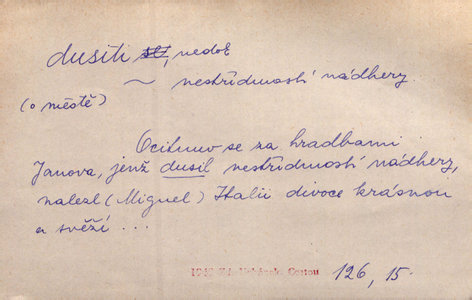 dusiti se, nedok
~ nestřídmostí nádhery.
(o městě)
Ocitnuv se za hradbami
Janova, jenž dusil nestřídmostí nádhery,
nalezl (Miguel) Italii divoce krásnou
a svěží ...
Cestou 126, 15.